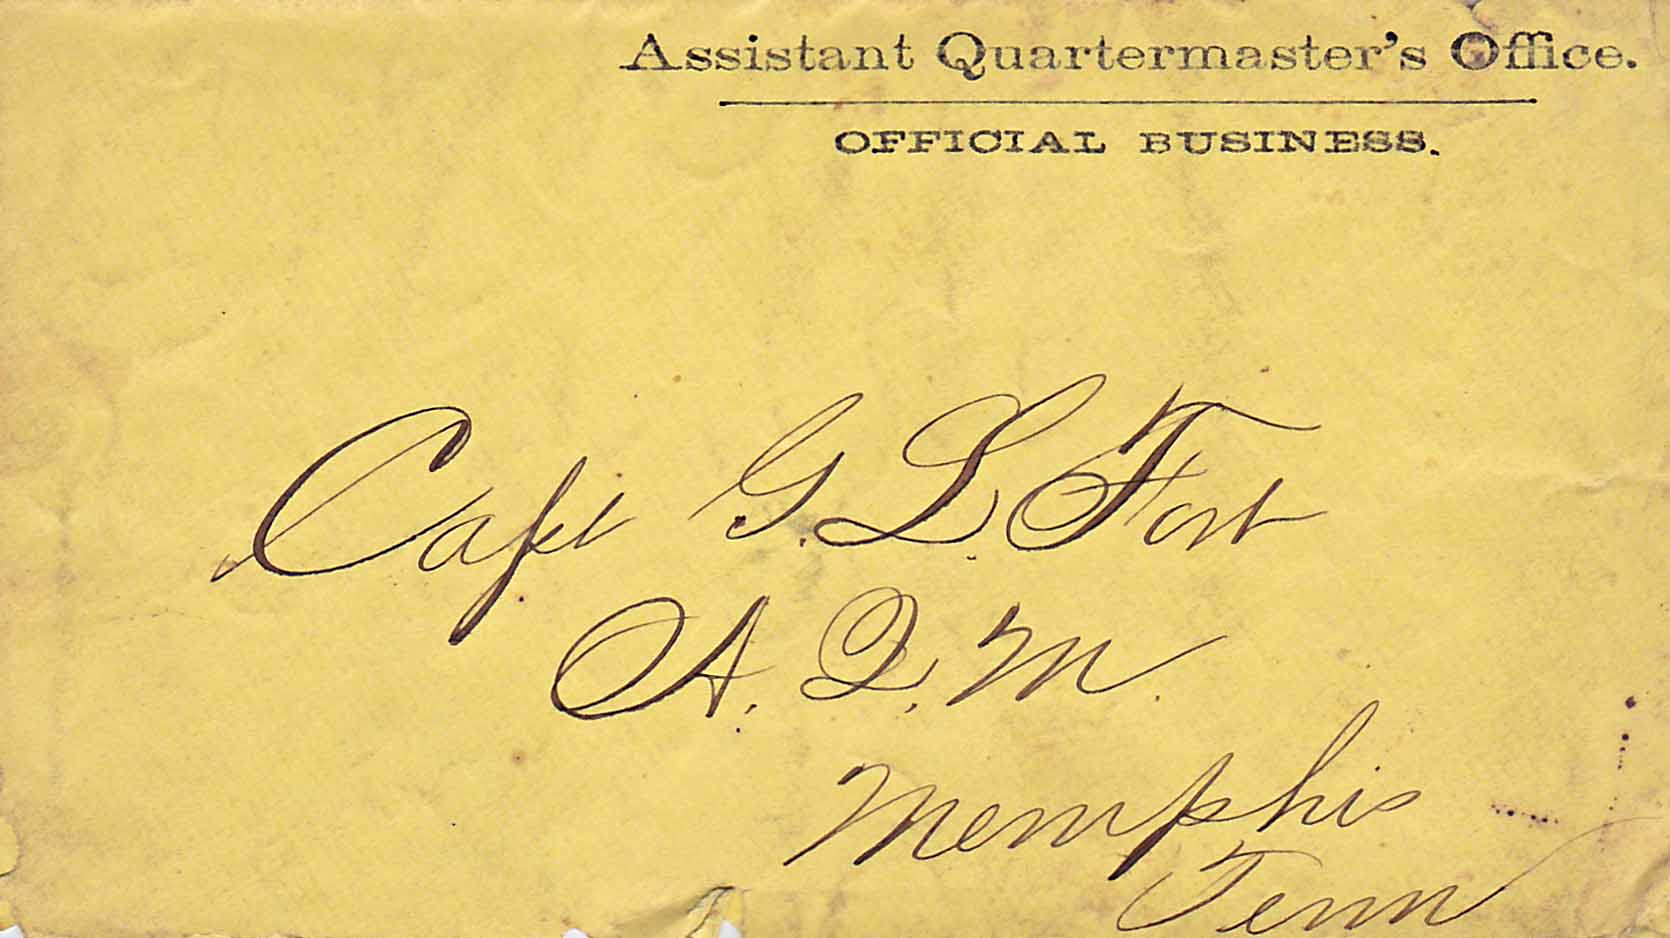 Assistant Quartermaster's Office.
OFFICIAL BUSINESS.
Capt G. L. Fort
A. Q. M.
Memphis
Tenn